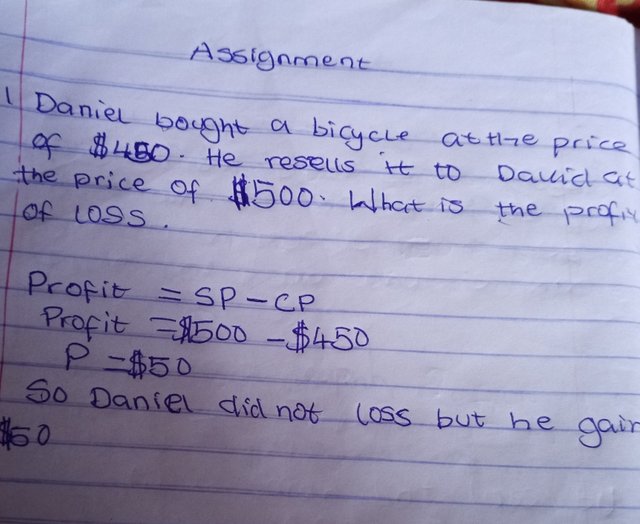 Assignment
1 Daniel bought a bicycle at the price
of $450. He resells it to David at
the price of $500. What is the profit
of loss.
Profit = SP - CP
Profit = $500 - $450
P = $50
So Daniel did not loss but he gain
$50